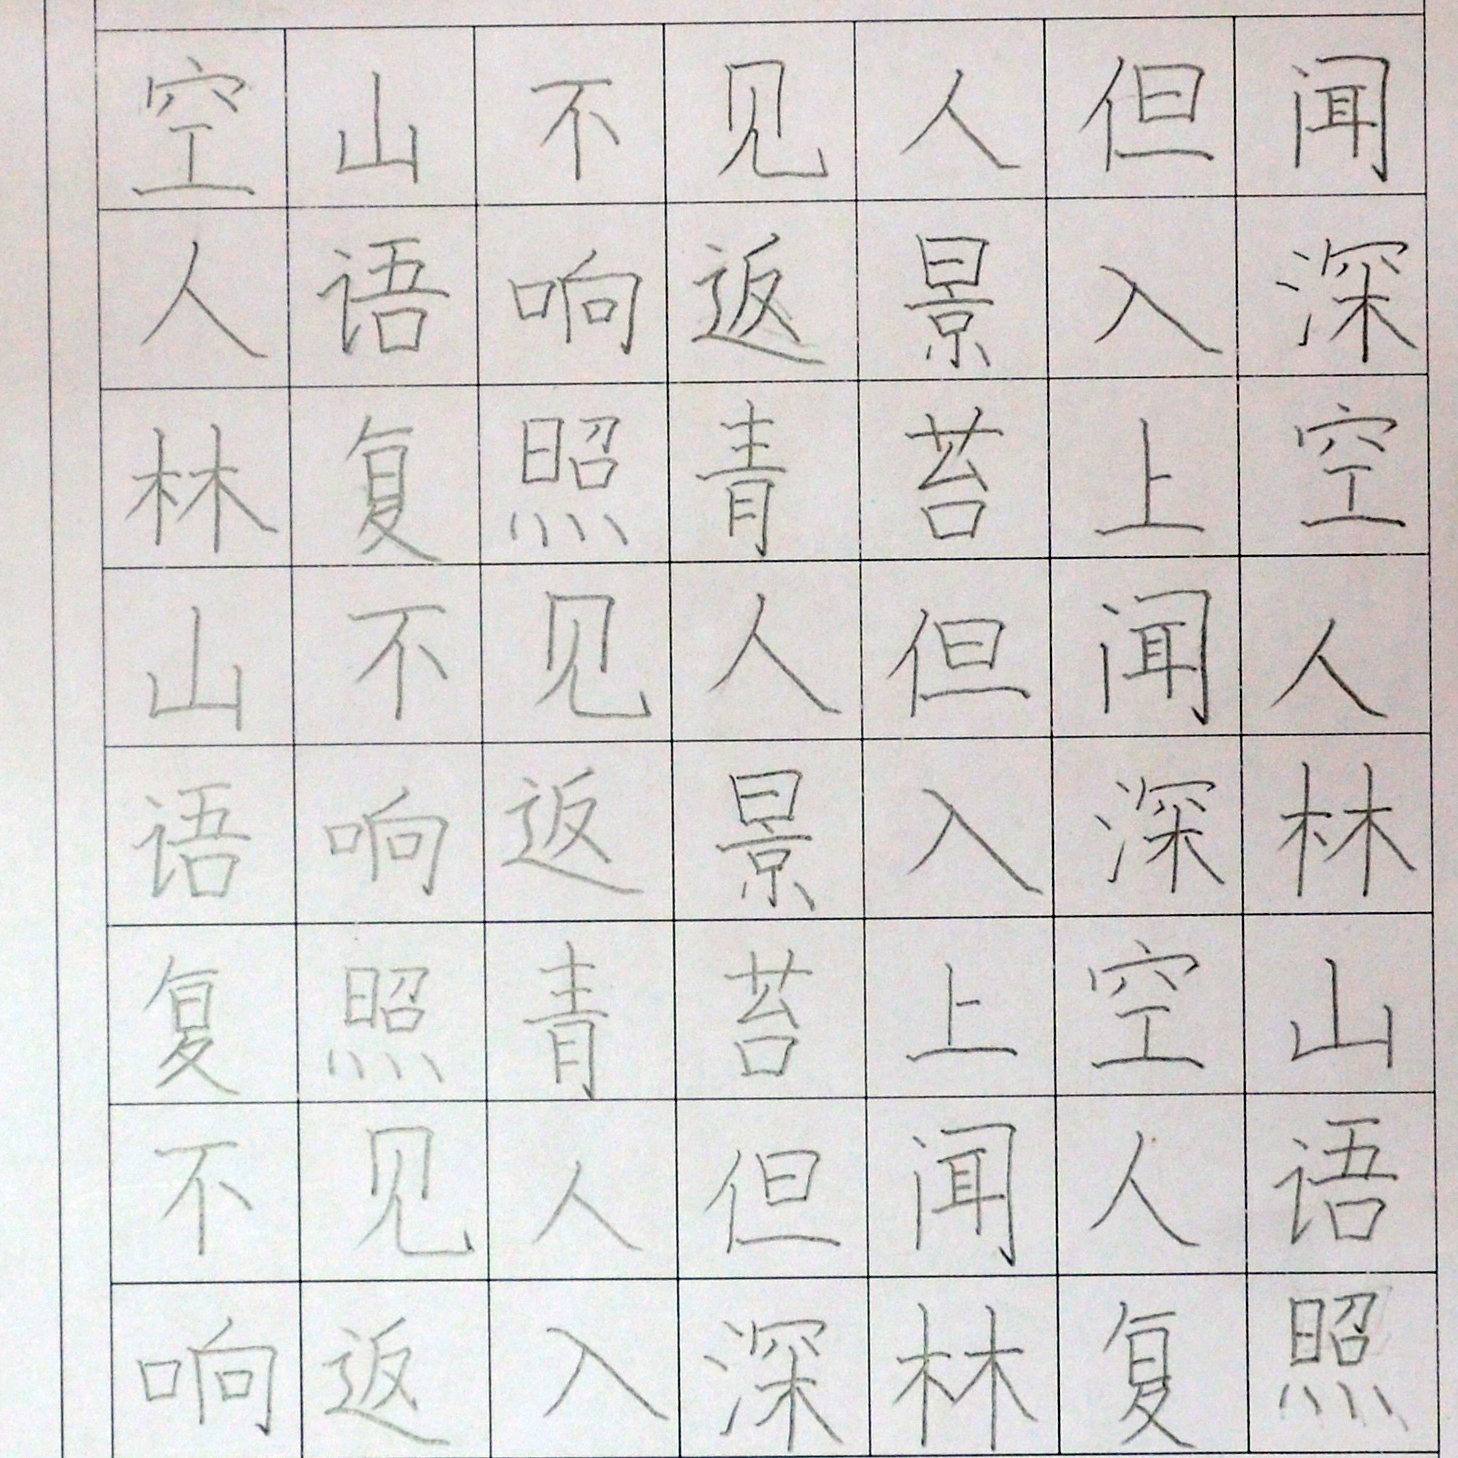 空山不见人但闻
人语响返景入深
林复照青苔上空
山不见人但闻人
语响返景入深林
复照青苔上空山
不见人但闻人语
响返入深林复照